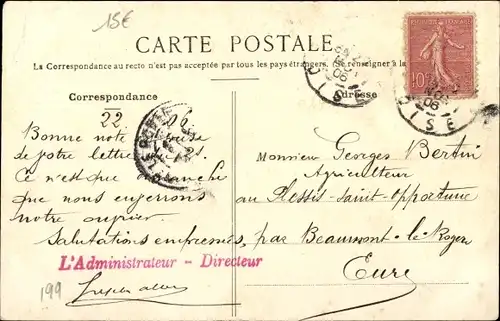 15€
CARTE POSTALE
La Correspondance au recto n'est pas acceptée par tous les pays étrangers. (Se renseigner à la
Correspondance
Adresse
10
OISE
06
OISE
22
Bonne note
de votre lettre
Ce n'est que dimanche
que nous enverrons
notre
Salutations empressées
L'Administrateur - Directeur
199
Monsieur Georges Bertin
Agriculteur
au Plessis-Saint-Opportune
par Beaumont-le-Roger
Eure